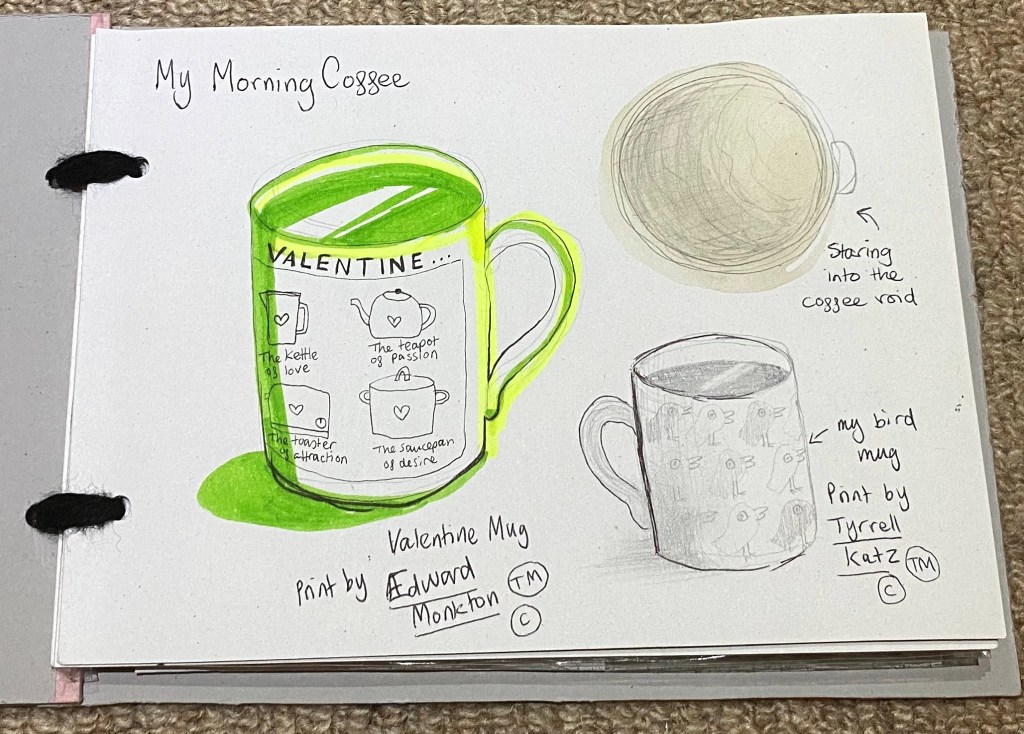 My Morning Coffee
VALENTINE...
The kettle
of love
The teapot
of passion
The toaster
of attraction
The saucepan
of desire
Valentine Mug
Print by Edward
Monkton
TM
C
Staring
into the
coffee void
my bird
mug
Print by
Tyrrell
Katz TM
C